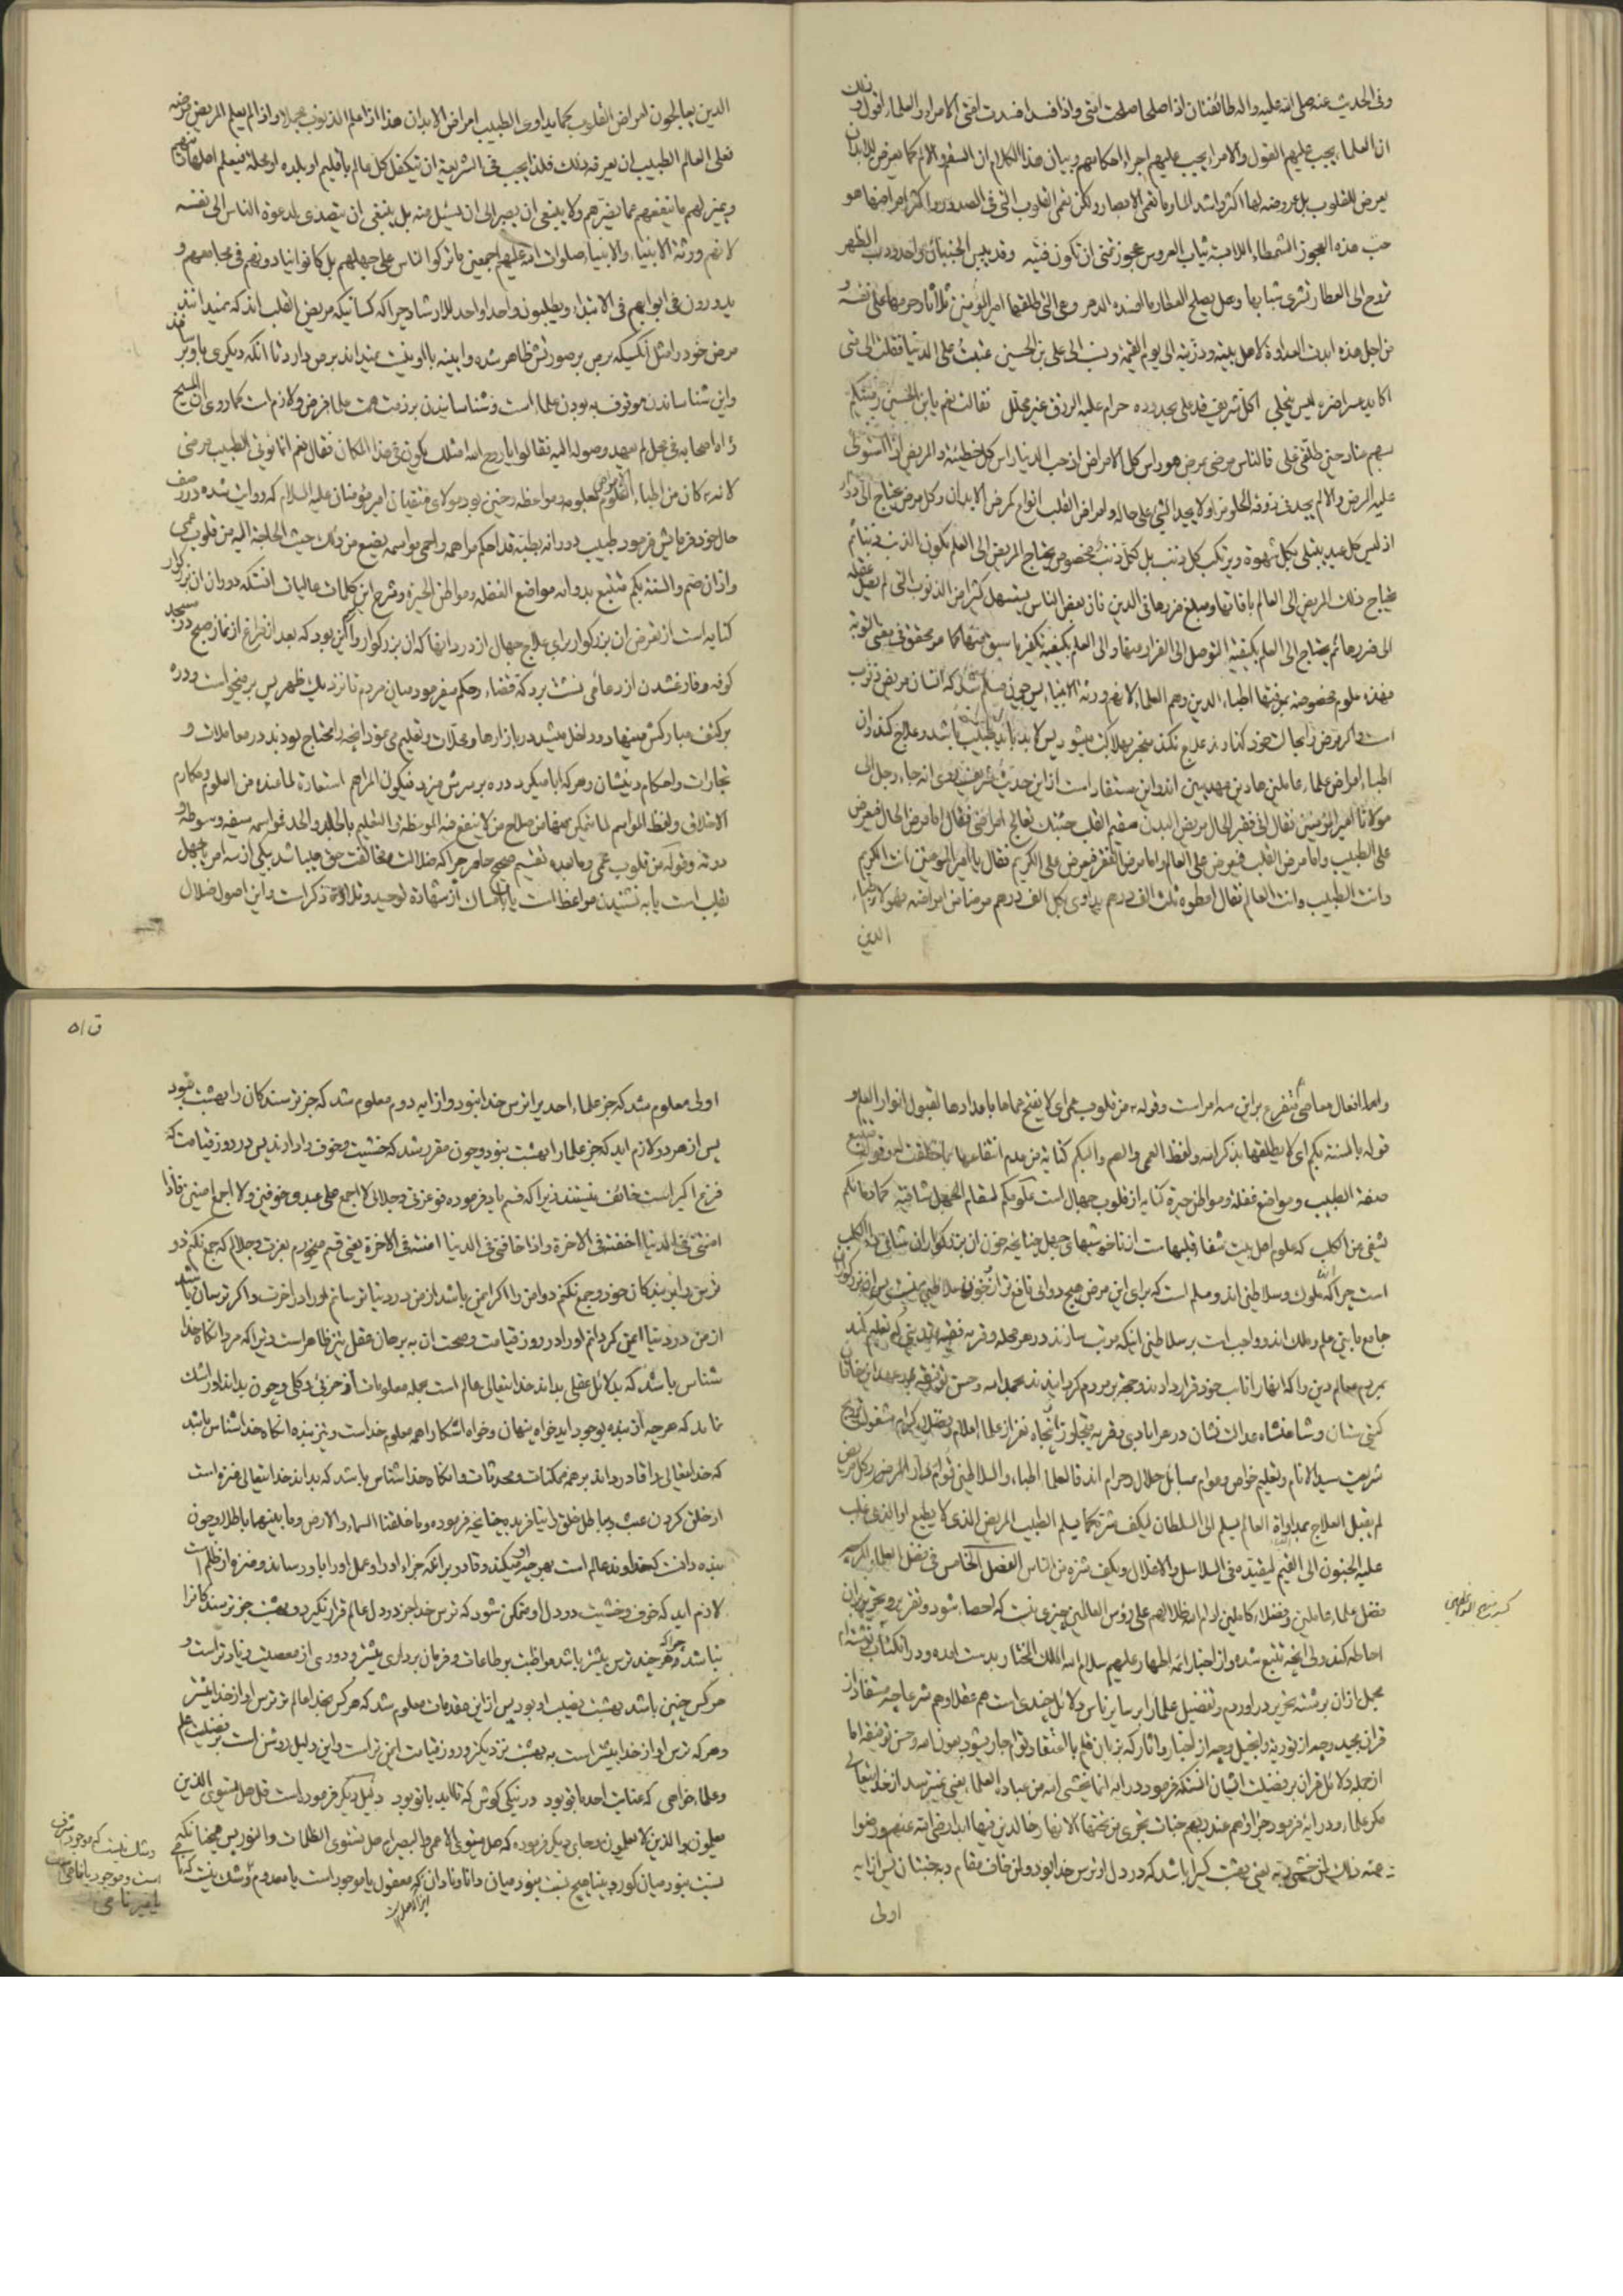 وفی الحدیث عنه صلی الله علیه واله طائفتان اذا صلحا صلحت امتی واذا فسدا فسدت امتی الامراء والعلماء اقول
ان العلماء یجب علیهم القول والامراء یجب علیهم اجراء احکامهم وبیان هذا الکلام ان السقم والالم کما یعرض للابدان
یعرض للقلوب بل عروضه لها اکثر واشد ولکن تعمی القلوب التی فی الصدور واکثر امراضها هو
حب هذه العجوز الشمطاء اللابسة ثیاب العروس عجوز تمنی ان تکون فتیه وقد یبس الجنبان واحدودب الظهر
تروح الی العطار تشری شبابها وهل یصلح العطار ما افسده الدهر وهی التی طلقها امیر المؤمنین ثلاثا وحرمها علی نفسه و
من اجل هذه ابدت العداوة لاهل بیته وذریته الی یوم القیمة ونسب الی علی بن الحسین عتبت علی الدنیا فقلت الی متی
اکابد لیس ینجلی اکل شریف قد علی بجدوده حرام علیه الرزق غیر محلل فقالت نعم یابن الحسین رمیتکم
بسهم عناد حین طلقنی علی فالناس مرضی وراس کل الامراض حب الدنیا راس کل خطیئة والمریض اذا استولی
علیه المرض والالم یجد فی ذوقه الحلو مرا ولا یجد الشئ علی حاله ولامراض القلب انواع کمرض الابدان وکل مرض یحتاج الی دواء
اذ لیس کل عبد یبتلی بکل شهوة ویرتکب کل ذنب بل لکل ذنب مخصوص یحتاج المریض الی العلم بکون الذنب ذنبا ثم
یحتاج ذلک المریض الی العالم بافاتها ومبلغ ضررها فی الدین فان بعض الناس یستسهل کثیرا من الذنوب التی لم یصل عقله
الی ضررها ثم یحتاج الی العلم بکیفیة التوصل الی الفرار منها والی العلم بکیفیة تکفیر ما سبق منها کما هو محقق فی معنی التوبة
فهذه علوم مخصوصة یعرفها اطباء الدین وهم العلماء لانهم ورثة الانبیاء پس چون مسلم شد که انسان مریض ذنوب
است واگر مرض را بحال خود گذارد و علاج نکند منجر بهلاکت میشود پس لابد باید طبیب باشد و علاج کند وان
اطباء امراض علماء عاملین هادین مهدیین اند واین مستفاد است از این حدیث شریف روی انه جاء رجل الی
مولانا امیر المؤمنین فقال انی فقیر الحال مریض البدن سقیم القلب جئتک تعالج امراضی فقال اما مرض الحال فیعرض
علی الطبیب واما مرض القلب فیعرض علی العالم واما مرض الفقر فیعرض علی الکریم فقال یا امیر المومنین انت الکریم
وانت الطبیب وانت العالم فقال اعطوه ثلث الف درهم یداوی بکل الف درهم مرضا من امراضه فهولاء اطباء
الدین
الدین یعالجون امراض القلوب کما یداوی الطبیب امراض الابدان هذا اذا علم الذنوب مجملا واذا لم یعلم المریض مرضه
فعلی العالم الطبیب ان یعرفه ذلک فلذا یجب فی الشریعة ان یتکفل کل عالم باقلیم او بلده او محلة فیعلم اهلها دینهم
ویمیز لهم ما ینفعهم مما یضرهم ولا ینبغی ان یصبر الی ان یسئل منه بل ینبغی ان یتصدی لدعوة الناس الی نفسه
لانهم ورثة الانبیاء والانبیاء صلوات الله علیهم اجمعین ما ترکوا الناس علی جهلهم بل کانوا ینادونهم فی مجامعهم و
یدورون فی ابوابهم فی الابتداء ویطلبون واحدا واحدا للارشاد چرا که کسانیکه مریض القلب اند که نمیدانند
مرض خود را مثل آنکسیکه برص بر صورتش ظاهر شده وآیینه با او نیست نمیداند برص دارد تا آنکه دیگری باو برساند
واین شناساندن موقوف به بودن علماء است وشناسانیدن بر ذمت همت علماء فرض و لازم است کما روی ان المسیح
راه اصحابه فی محل لم یعهد وصوله الیه فقالوا یا روح الله امثلک یکون فی هذا المکان فقال نعم انما یوتی الطبیب مرضی
لانه کان من اطباء القلوب بعلومه ومواعظه وچنین بود مولای متقیان امیر مؤمنان علیه السلام که روایت شده در وصف
حال خود فرمایش فرمود طبیب دوار بطبه قد احکم مراهمه واحمی مواسمه یضع من ذلک حیث الحاجة الیه من قلوب عمی
واذان صم والسنة بکم متتبع بدوائه مواضع الغفلة ومواطن الحیرة وشرح این کلمات عالیات انستکه دوران ان بزرگوار
کنایه است از تعرض ان بزرگوار برای علاج جهال از درد و انها که ان بزرگوار بود که بعد از فراغ از نماز صبح در مسجد
کوفه و فارغ شدن از دعا می نشست بر دکة قضاء وحکم میفرمود میان مردم تا نزدیک ظهر پس بر میخواست و دره
بر کتف مبارکش مینهاد و داخل میشد در بازارها و محلات و تعلیم می نمود انچه را محتاج بودند در معاملات و
تجارات و احکام دینشان و هر که ابا میکرد دره بر سرش میزد فیکون المراهم استعارة لما عنده من العلوم ومکارم
الاخلاق ولفظ المواسم لما یتمکن منها من اصلاح من لا ینفع فیه الموعظة والتعلیم بالجلد والحد فمواسمه سیفه وسوطه و
درته وقوله من قلوب عمی وما بعده تقسیم صحیح حاصر چرا که ضلالت و مخالفت حق میباشد بیکی از سه امر یا بجهل
بقلب است یا به نشنیدن مواعظ است یا بامساک از شهادة توحید و تلاوة ذکر است واین اصول ضلال
واما افعال معاصی متفرع بر این سه امر است وقوله من قلوب عمی ای لا یفتح عماها باعدادها لقبول انوار العلم و
قوله بالسنة بکم ای لا یطلقها بذکر الله ولفظ العمی والصم والبکم کنایة من عدم انتفاعها بما خلقت له وقوله متتبع
صفة الطبیب ومواضع غفلة ومواطن حیرة کنایه از قلوب جهال است علومکم لسقام الجهل شافیة کما دماءکم
تشفی من الکلب که علوم اهل بیت شفاء قلبهاست از ناخوشیهای جهل چنانچه خون ان بزرگواران شافی داء الکلب
است چرا که ملوک وسلاطین اند ومسلم است که برای این مرض هیچ دوائی نافع تر از خون سلاطین نیست پس ان بزرگواران
جامع ما بین علم وملک اند وواجب است بر سلاطین اینکه مرتب سازند در هر محله و قریه فقیه متدینی تعلیم کند
بمردم معالم دین را که ایشان را نایب خود قرار دادند وحجت بر مردم گردانیدند بحمد الله وحسن توفیقه
گیتی ستان وشاهنشاه عدالت نشان در هر آبادی وقریه متجاوز از پنجاه نفر از علماء اعلام وفضلای کرام مشغول ترویج
شریعت سید الانام وتعلیم خواص وعوام بمسائل حلال وحرام اند فالعلماء اطباء والسلاطین قوام دار المرضی وکل مریض
لم یقبل العلاج بمداواة العالم یسلم الی السلطان لیکف شره کما یسلم الطبیب المریض الذی لا یطیع او الذی غلب
علیه الجنون الی القیم لیقیده فی السلاسل والاغلال ویکف شره من الناس الفصل الخامس فی فضل العلماء
فضل علماء عاملین وفضلاء کاملین ادام الله ظلالهم علی رؤس العالمین چیزی نیست که احصاء شود و تقریر و تحریر بران
احاطه کند ولی انچه تتبع شده واز اخبار ائمه اطهار علیهم سلام الله الملک المختار بدست امده ودر این کتاب نوشته ام
مجمل از ان برشته تحریر در آوردم وتفضیل علماء بر سایر ناس دلائل چندی است هم عقلا وهم شرعا چه مستفاد از
قران مجید وچه از توریة وانجیل وچه از اخبار واثار که بزبان قلم با اعتقاد توام جار بشود بعون الله وحسن توفیقه اما
از جمله دلائل قران بر فضیلت ایشان انستکه فرمود در ایه انما یخشی الله من عباده العلماء یعنی نمیترسد از خدایتعالی
مگر علماء ودر ایه فرمود جزاؤهم عند ربهم جنات تجری من تحتها الانهار خالدین فیها ابدا رضی الله عنهم ورضوا
عنه ذلک لمن خشی ربه یعنی بهشت کسیرا باشد که در دل او ترس خدا بود ولمن خاف مقام ربه جنتان پس از ایه
اولی
ق ۵۱
اولی معلوم شد که جز علماء احدیرا ترس خدا نبود واز ایه دوم معلوم شد که جز ترسندکان را بهشت نبود
پس از هر دو لازم اید که جز علماء را بهشت نبود وچون مقرر شد که خشیت وخوف را دارند پس در روز قیامت که
فزع اکبر است خائف نیستند زیرا که قسم یاد فرموده فوعزتی وجلالی لا اجمع علی عبدی خوفین ولا اجمع امنین فاذا
امننی فی الدنیا اخفته فی الاخرة واذا خافنی فی الدنیا امنته فی الاخرة یعنی قسم میخورم بعزت وجلالم که جمع نکنم دو
ترس را بر بندکان خود و جمع نکنم دو امن را اگر ایمن باشد از من در دنیا ترسانم او را در اخرت واگر ترسان باشد
از من در دنیا ایمن گردانم او را در روز قیامت وصحت ان به برهان عقل نیز ظاهر است زیرا که مرد انگاه خدا
شناس باشد که بدلائل عقلی بداند خدایتعالی عالم است بجمله معلومات از جزئی و کلی وچون بداند
نماند که هر چه از بنده بوجود اید خواه پنهان وخواه آشکارا همه معلوم خداست ونیز بنده انگاه خدا شناس باشد
که خدایتعالی را قادر داند بر همه ممکنات ومحدثات وانگاه خدا شناس باشد که بداند خدایتعالی منزه است
از خلق کردن عبث وبباطل خلق را نیافریده چنانچه فرموده وما خلقنا السماء والارض وما بینهما باطلا وچون
بنده دانست که خداوند عالم است بهرچه او میکند وقادر بر انکه جزاء او را و عمل او را باو رساند ومنزه از ظلم است
لازم اید که خوف وخشیت در دل او متمکن شود که ترس خدا جز در دل عالم قرار نگیرد وبهشت جز ترسندکانرا
نباشد چرا که هر چند ترس بیشتر باشد مواظبت بر طاعات وفرمان برداری بیشتر ودوری از معصیت زیادتر است و
هر کس چنین باشد بهشت نصیب او بود پس از این مقدمات معلوم شد که هر کس بخدا عالم تر ترس او از خدا بیشتر
وهر که ترس او از خدا بیشتر است به بهشت نزدیکتر وروز قیامت ایمن تر است واین دلیل روشن است بر فضیلت علم
وعلماء خواهی که عنایت احد با تو بود در نیکی کوش که تا ابد با تو بود دلیل دیگر فرموده است قل هل یستوی الذین
یعلمون والذین لا یعلمون وجای دیگر فرموده که هل یستوی الاعمی والبصیر ام هل تستوی الظلمات والنور پس همچنانکه
نسبت نبود میان کور وبینا هیچ نسبت نبود میان دانا ونادان که معقول یا موجود است یا معدوم وشک نیست که
وشک نیست که موجود شرف
است وموجود یا نامی است
یا غیر نامی